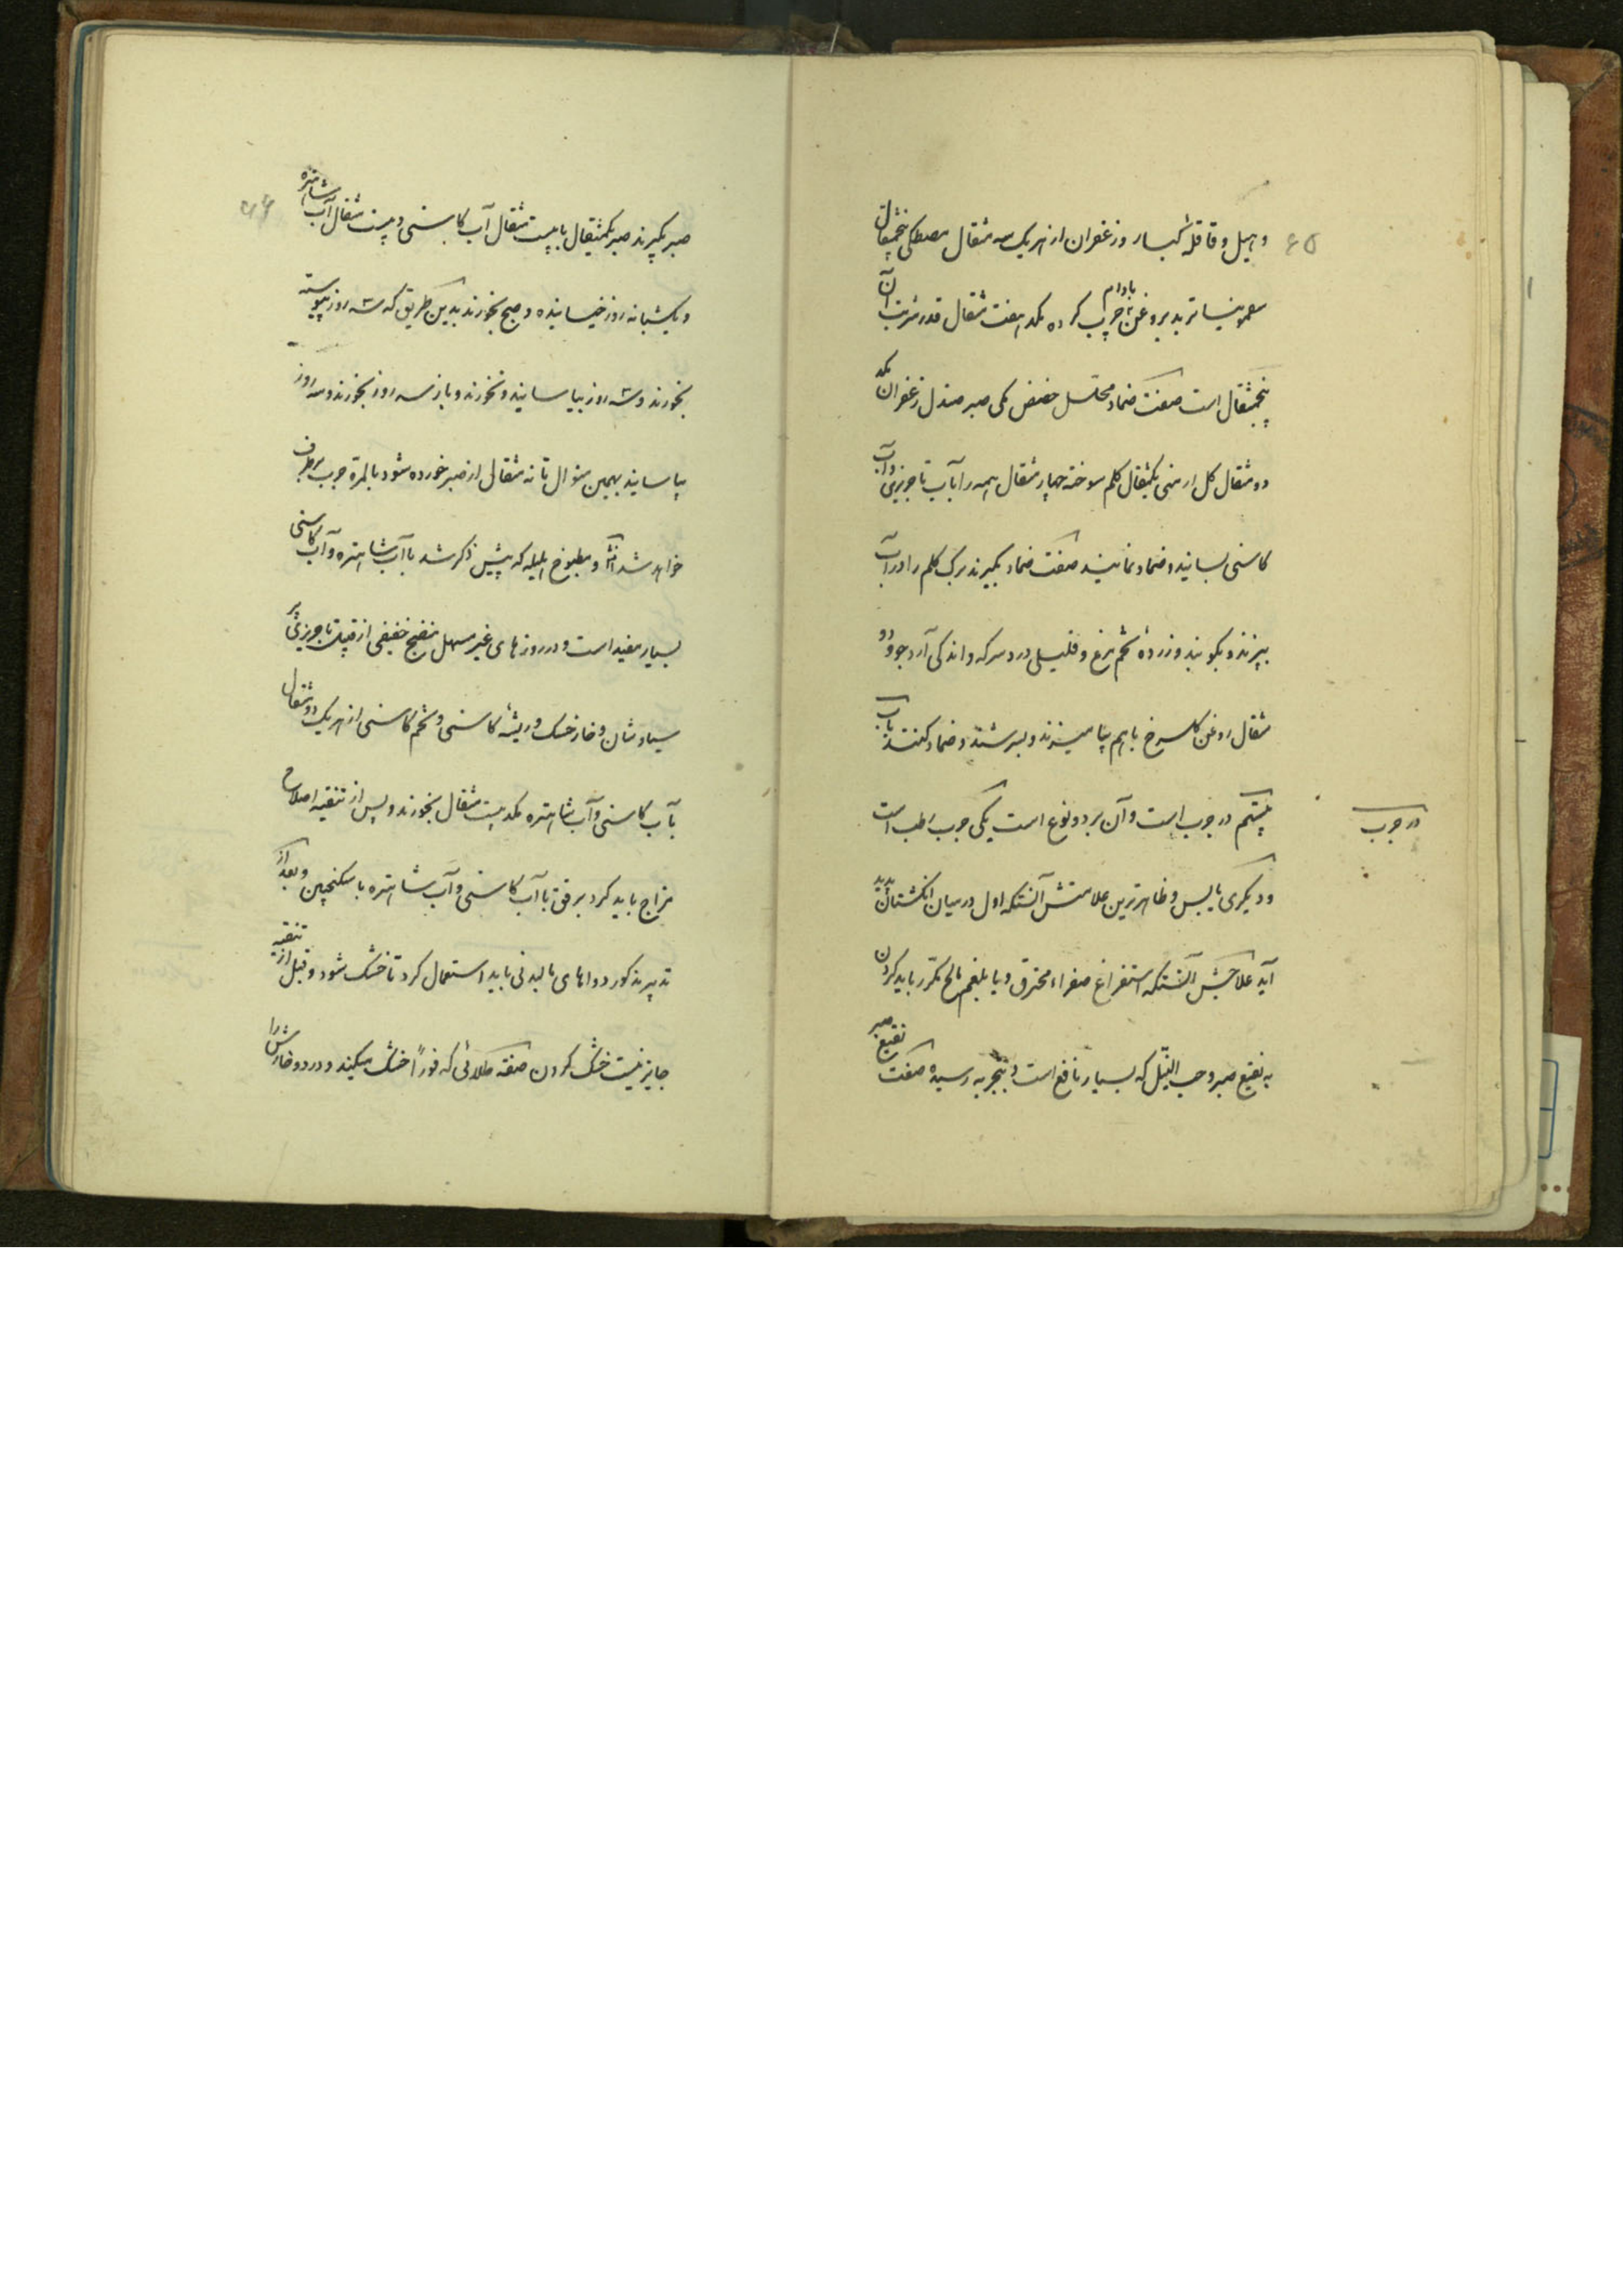 ۶۵
و هیل و قاقله کبار و زعفران از هر یک سه مثقال مصطکی پنجمثقال
سقمونیا تربد بروغن بادام چرب کرده یکصد هفت مثقال قدر شربت آن
پنجمثقال است صفت ضماد محلل حضض مکی صبر صندل زعفران یکد
دو مثقال گل ارمنی یکمثقال کلم سوخته چهار مثقال همه را بآب تاجریزی و آب
کاسنی بسایند و ضماد نمایند صفت ضماد بگیرند برگ کلم را در آب
بپزند و بکوبند و زرده تخم مرغ و قلیلی درد سرکه و اندکی آرد جو و دو
مثقال روغن گلسرخ باهم بیامیزند و بسرشند و ضماد کنند باب
بیستم در جرب است و آن بر دو نوع است یکی جرب رطب است
در جرب
و دیگری یابس و ظاهرترین علامتش آنستکه اول در میان انگشتان پدید
آید علاجش آنستکه استفراغ صفراء محترق و یا بلغم مالح مکرر باید کردن
به نقیع صبر و حب النیل که بسیار نافع است و بتجربه رسیده صفت نقیع صبر
۶۶
صبر بگیرند صبر یکمثقال با بیست مثقال آب کاسنی و بیست مثقال آب شاهتره
و یکشبانه روز خیسانیده و صبح بخورند بدین طریق که سه روز پیوسته
بخورند و سه روز بیاسایند و نخورند و باز سه روز بخورند و سه روز
بیاسایند بهمین منوال تا نه مثقال از صبر خورده شود بالمرة جرب برطرف
خواهد شد انشاء و مطبوخ هلیله که پیش ذکر شد با آب شاهتره و آب کاسنی
بسیار مفید است و در روزهای غیر مسهل منضج خفیفی از قبیل تاجریزی پر
سیاوشان و خارخسک و ریشه کاسنی و تخم کاسنی از هر یک دو مثقال
بآب کاسنی و آب شاهتره یکصد بیست مثقال بخورند و پس از تنقیه اصلاح
مزاج باید کرد برفق با آب کاسنی و آب شاهتره با سکنجبین و بعد از
تدبیر مذکور دواهای مالیدنی باید استعمال کرد تا خشک شود و قبل از تنقیه
جایز نیست خشک کردن صفة طلائی که فوراً خشک میکند و درد و خارش را